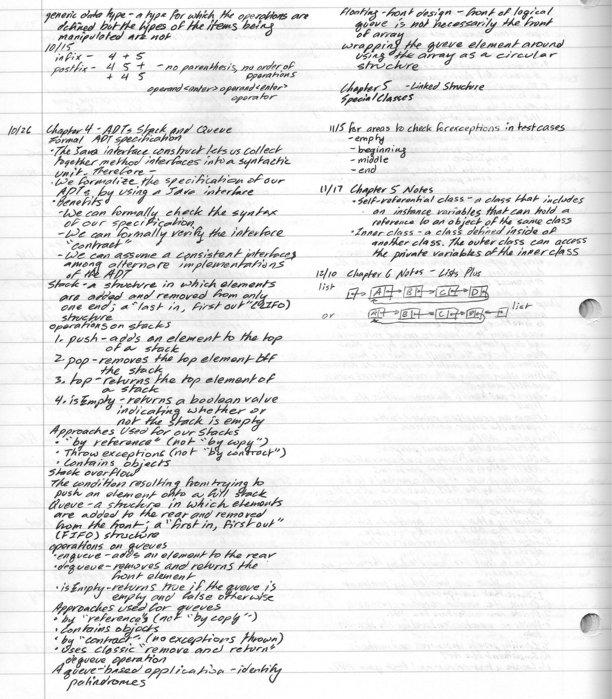 generic data type - a type for which the operations are
defined but the types of the items being
manipulated are not
10/15
infix - 4 + 5
postfix - 4 5 + - no parenthesis, no order of
+ 4 5 operations
operand<enter>operand<enter>
operator
10/26 Chapter 4 - ADTs Stack and Queue
Formal ADT specification
• The Java interface construct lets us collect
together method interfaces into a syntactic
unit. Therefore -
• We formalize the specification of our
ADTs by using a Java interface
• benefits
- We can formally check the syntax
of our specification
- We can formally verify the interface
"contract"
- We can assume a consistent interfaces
among alternate implementations
of the ADT
Stack - a structure in which elements
are added and removed from only
one end; a "last in, first out" (LIFO)
structure
operations on stacks
1. push - adds an element to the top
of a stack
2 pop - removes the top element off
the stack
3. top - returns the top element of
a stack
4. isEmpty - returns a boolean value
indicating whether or
not the stack is empty
Approaches Used for our Stacks
• "by reference" (not "by copy")
• Throw exceptions (not "by contract")
• Contains objects
Stack overflow
The condition resulting from trying to
push an element onto a full stack
Queue - a structure in which elements
are added to the rear and removed
from the front; a "first in, first out"
(FIFO) structure
operations on queues
• enqueue - adds an element to the rear
• dequeue - removes and returns the
front element
• isEmpty - returns true if the queue is
empty and false otherwise
Approaches used for queues
• by "reference" (not "by copy")
• Contains objects
• by "contract" (no exceptions thrown)
• uses classic "remove and return"
dequeue operation
A queue-based application - identify
palindromes
floating-front design - front of logical
queue is not necessarily the front
of array
wrapping the queue element around
using the array as a circular
structure
Chapter 5 - Linked Structure
Special Classes
11/5 for areas to check for exceptions in test cases
- empty
- beginning
- middle
- end
11/17 Chapter 5 Notes
• Self-referential class - a class that includes
an instance variables that can hold a
reference to an object of the same class
• Inner class - a class defined inside of
another class. The outer class can access
the private variables of the inner class
12/10 Chapter 6 Notes - Lists Plus
list A B C D
or A B C D list